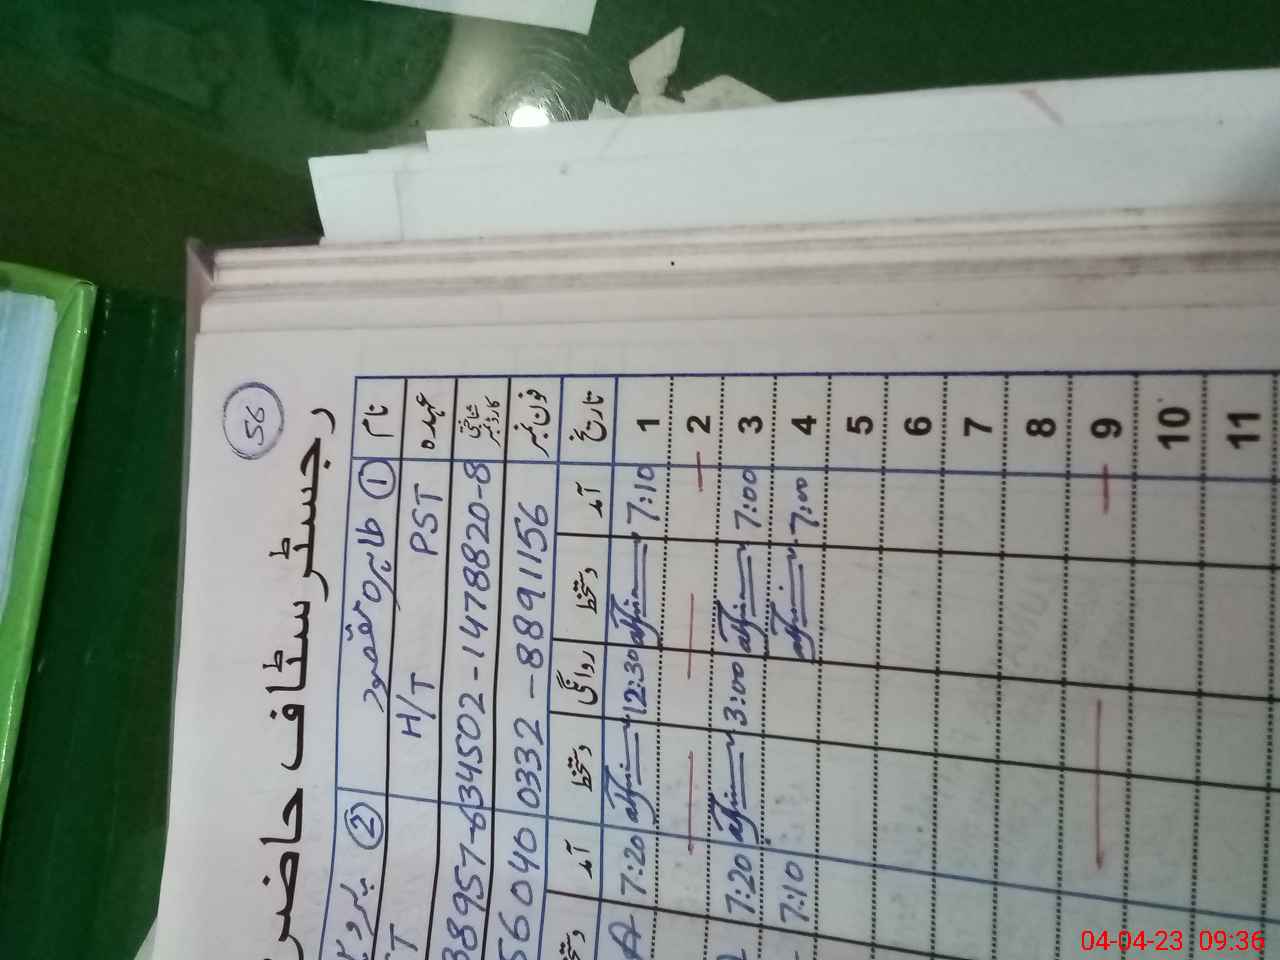 56
رجسٹر سٹاف حاضر
نام ① طاہرہ مقصود ②
عہدہ PST H/T T
شناختی کارڈ نمبر 34502-1478820-8 38957-6
فون نمبر 0332-8891156 56040
تاریخ آمد دستخط روانگی دستخط آمد دستخط
1 7:10 12:30 7:20
2
3 7:00 3:00 7:20
4 7:00 7:10
5
6
7
8
9
10
11
04-04-23 09:36